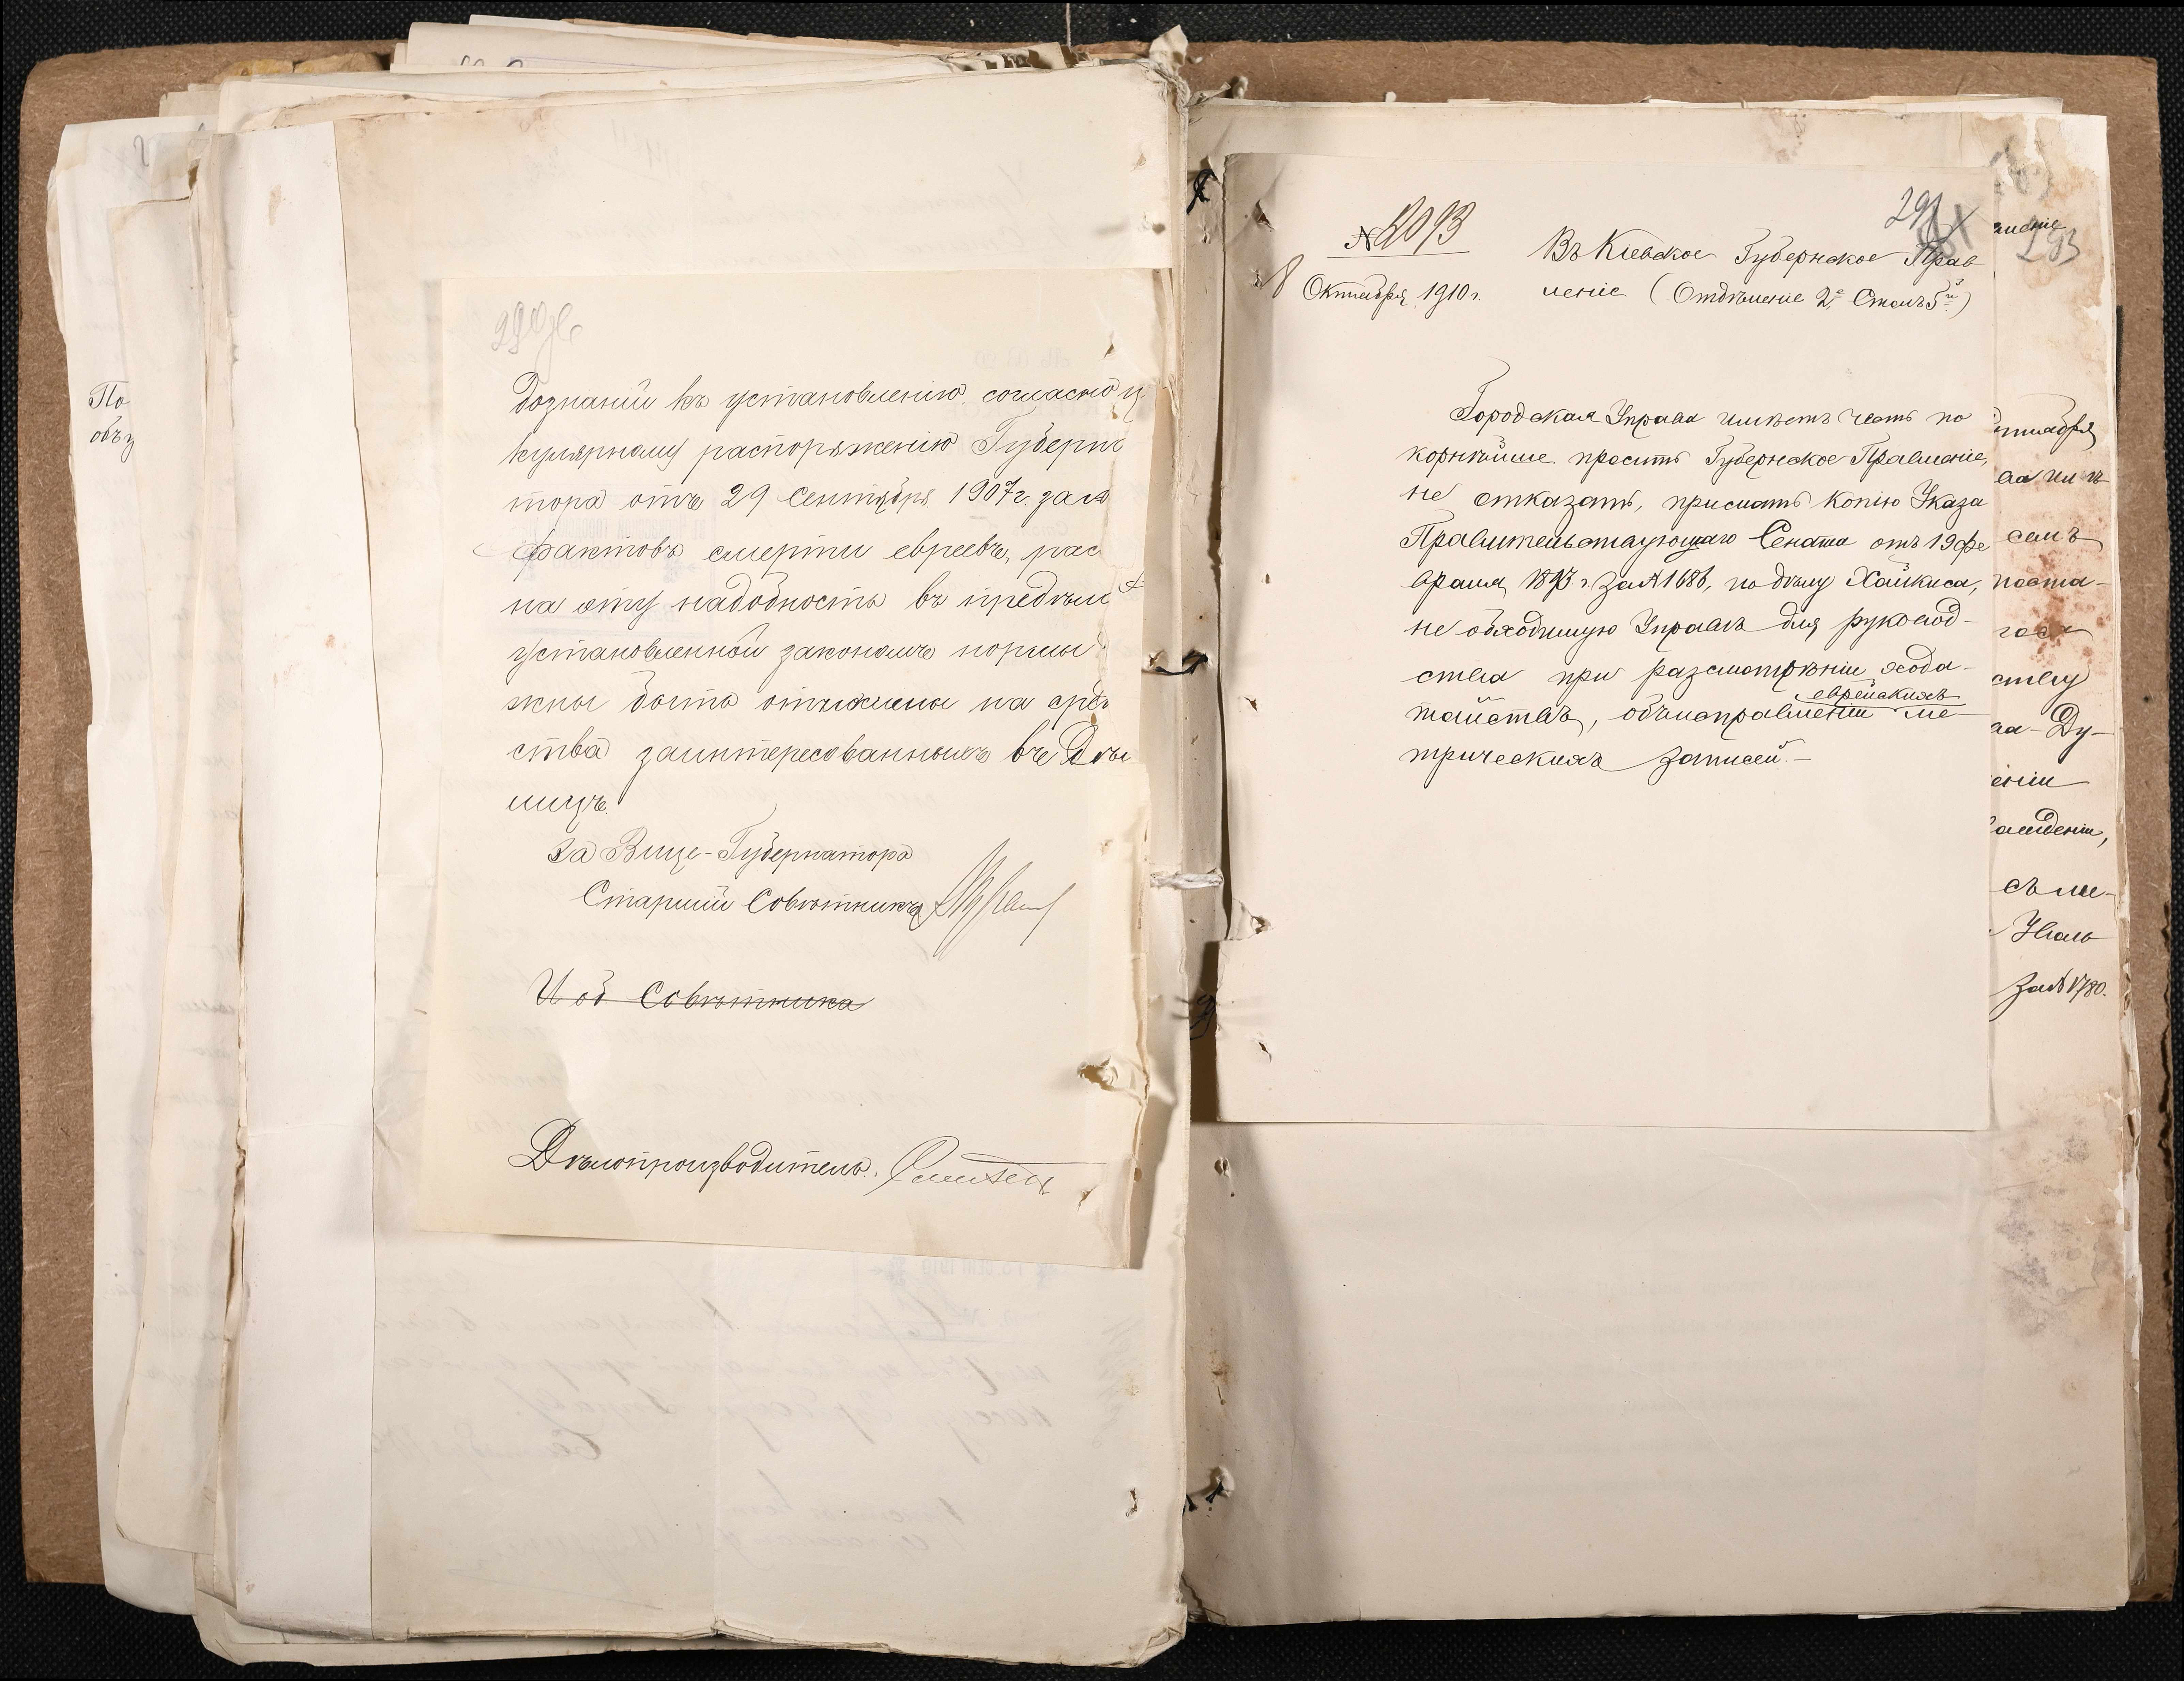 По
объз
дознаній къ установленію согласно ц
кулярному распоряженію Губерна
тора отъ 29 Сентября 1907 г. за №
фактовъ смерти евреевъ, рас
на эту надобность въ предѣл
установленной закономъ нормы
жны быть отнесены на сред
ства заинтересованныхъ въ Дѣл
лицъ.
За Вице-Губернатора
Старшій Совѣтникъ
И об Совѣтника
Дѣлопроизводитель
№ 2093
8 Октября 1910 г.
291
Въ Кіевское Губернское Прав
леніе (Отдѣленіе 2е Столъ 5й)
Городская Управа имѣетъ честь по
корнѣйше просить Губернское Правленіе,
не отказать, прислать копію Указа
Правительствующаго Сената отъ 19 фе
враля 1893 г. за № 1686, по дѣлу Хайкиса,
необходимую Управѣ для руковод-
ства при разсмотрѣніи хода-
тайствъ, объ исправленіи еврейскихъ ме-
трическихъ записей.-
283
тября
семъ
поста-
ству
Ду-
еніи
съ ме-
за № 1780.